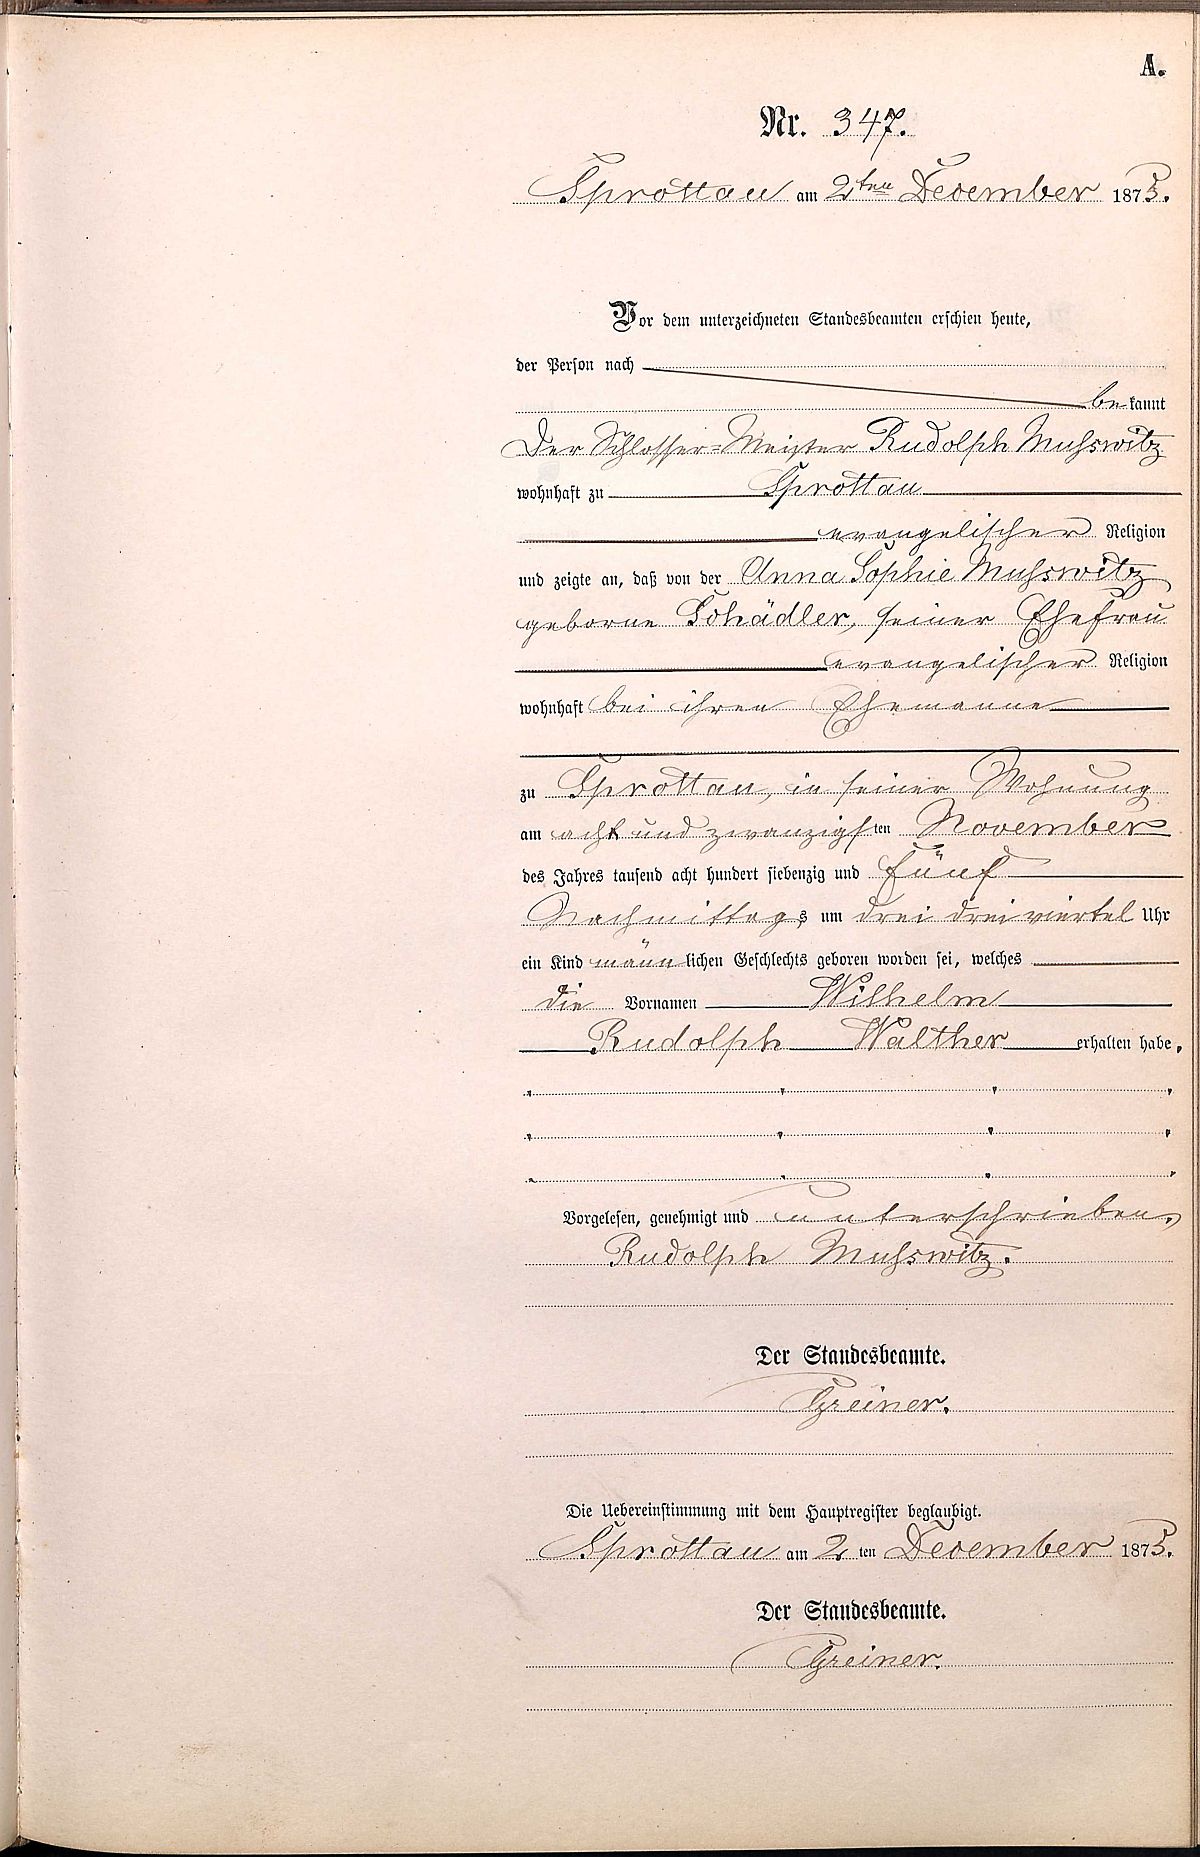 A.
Nr. 347.
Sprottau am 2ten December 1875.
Vor dem unterzeichneten Standesbeamten erschien heute,
der Person nach
bekannt
Der Schlosser-Meister Rudolph Muhswitz
wohnhaft zu Sprottau
evangelischer Religion
und zeigte an, daß von der Anna Sophie Muhswitz
geborne Schädler, seiner Ehefrau
evangelischer Religion
wohnhaft bei ihren Ehemanne
zu Sprottau, in seiner Wohnung
am acht und zwanzigsten November
des Jahres tausend acht hundert siebenzig und fünf
Nachmittags um drei dreiviertel Uhr
ein Kind männlichen Geschlechts geboren worden sei, welches
die Vornamen Wilhelm
Rudolph Walther erhalten habe.
Vorgelesen, genehmigt und unterschrieben.
Rudolph Muhswitz.
Der Standesbeamte.
Greiner.
Die Uebereinstimmung mit dem Hauptregister beglaubigt.
Sprottau am 2ten December 1875.
Der Standesbeamte.
Greiner.